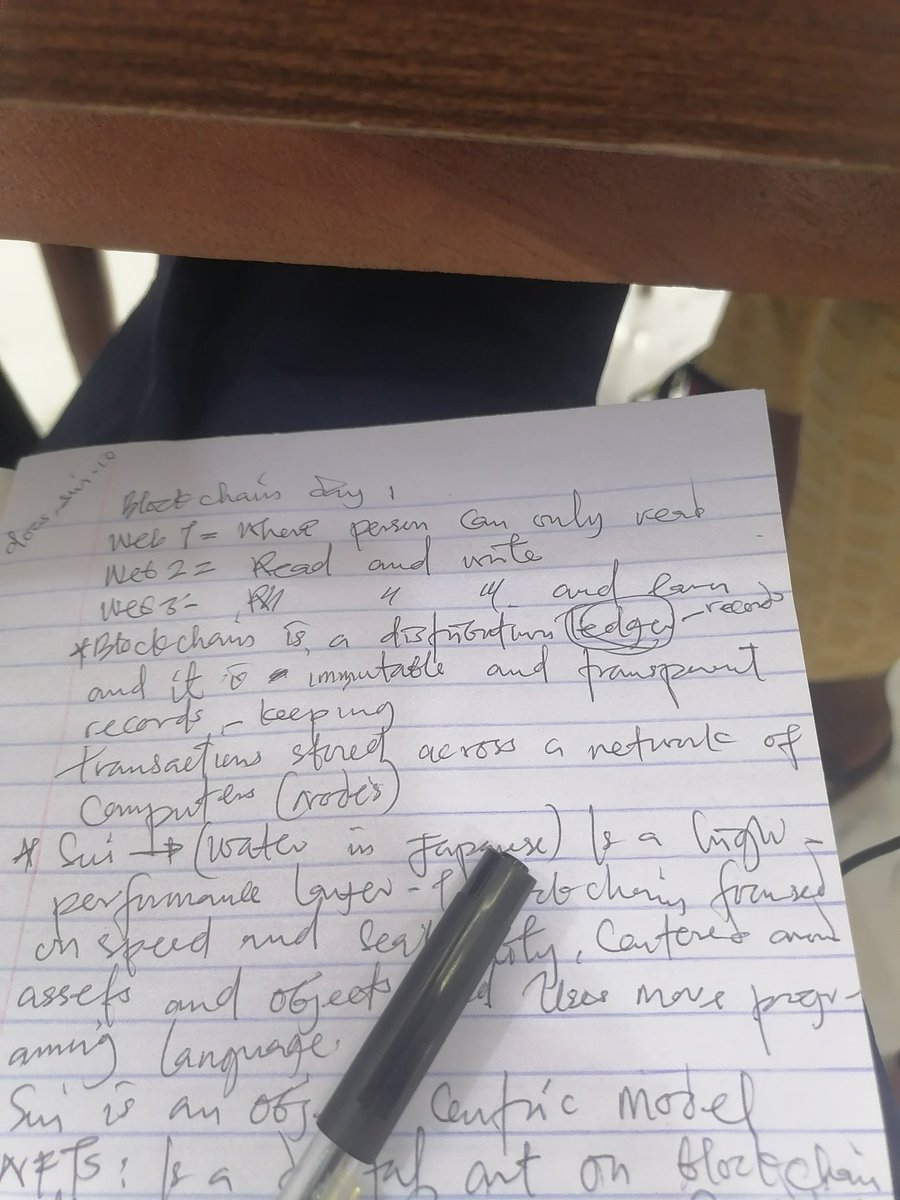 docs.sui.io
Blockchain Day 1
Web 1 = Where person can only read
Web 2 = Read and write
Web 3 - " " and earn
* Blockchain is a distributed (ledger) - records
and it is immutable and transparent
records - keeping
transactions stored across a network of
computers (nodes)
* Sui → (water in Japanese) Is a high -
performance layer-1 chain focused
on speed and , Centered around
assets and objects Uses move progr-
aming language.
Sui is an Centric model
NFTs: Is a art on blockchain